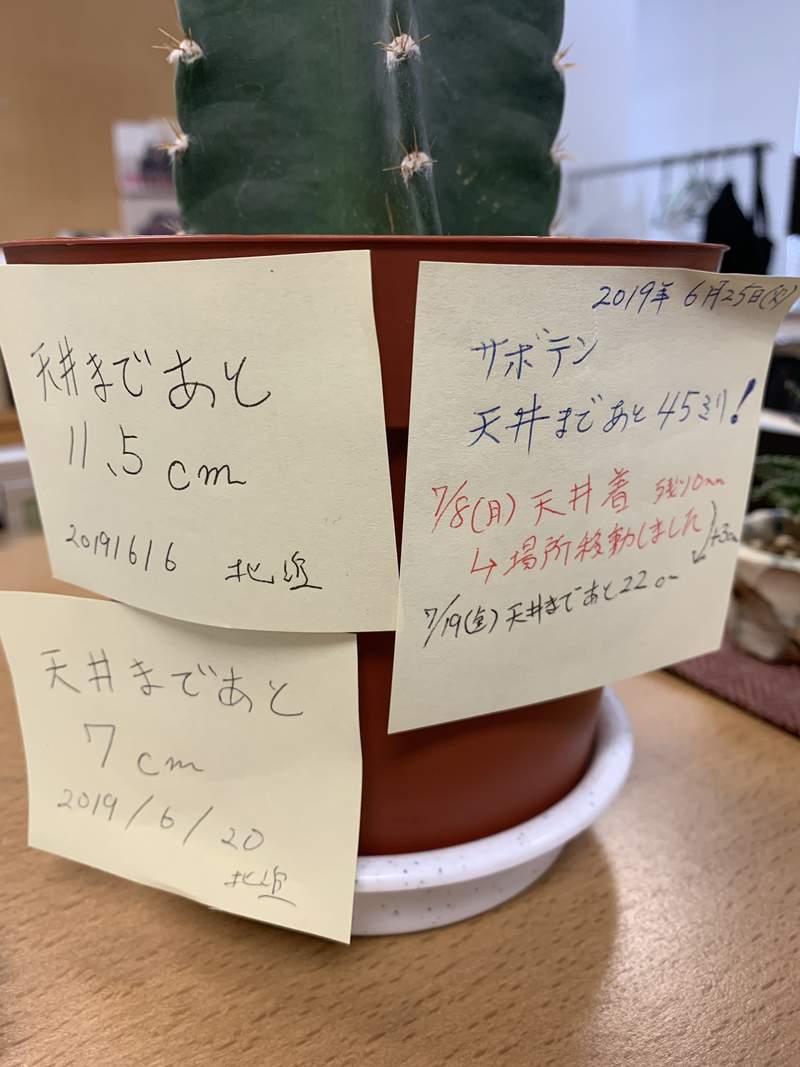 天井まであと
11.5cm
2019/6/6 北垣
天井まであと
7cm
2019/6/20
北垣
2019年6月25日(火)
サボテン
天井まであと45ミリ!
7/8(月)天井着 残り0mm
↳場所移動しました
7/19(金)天井まであと22cm